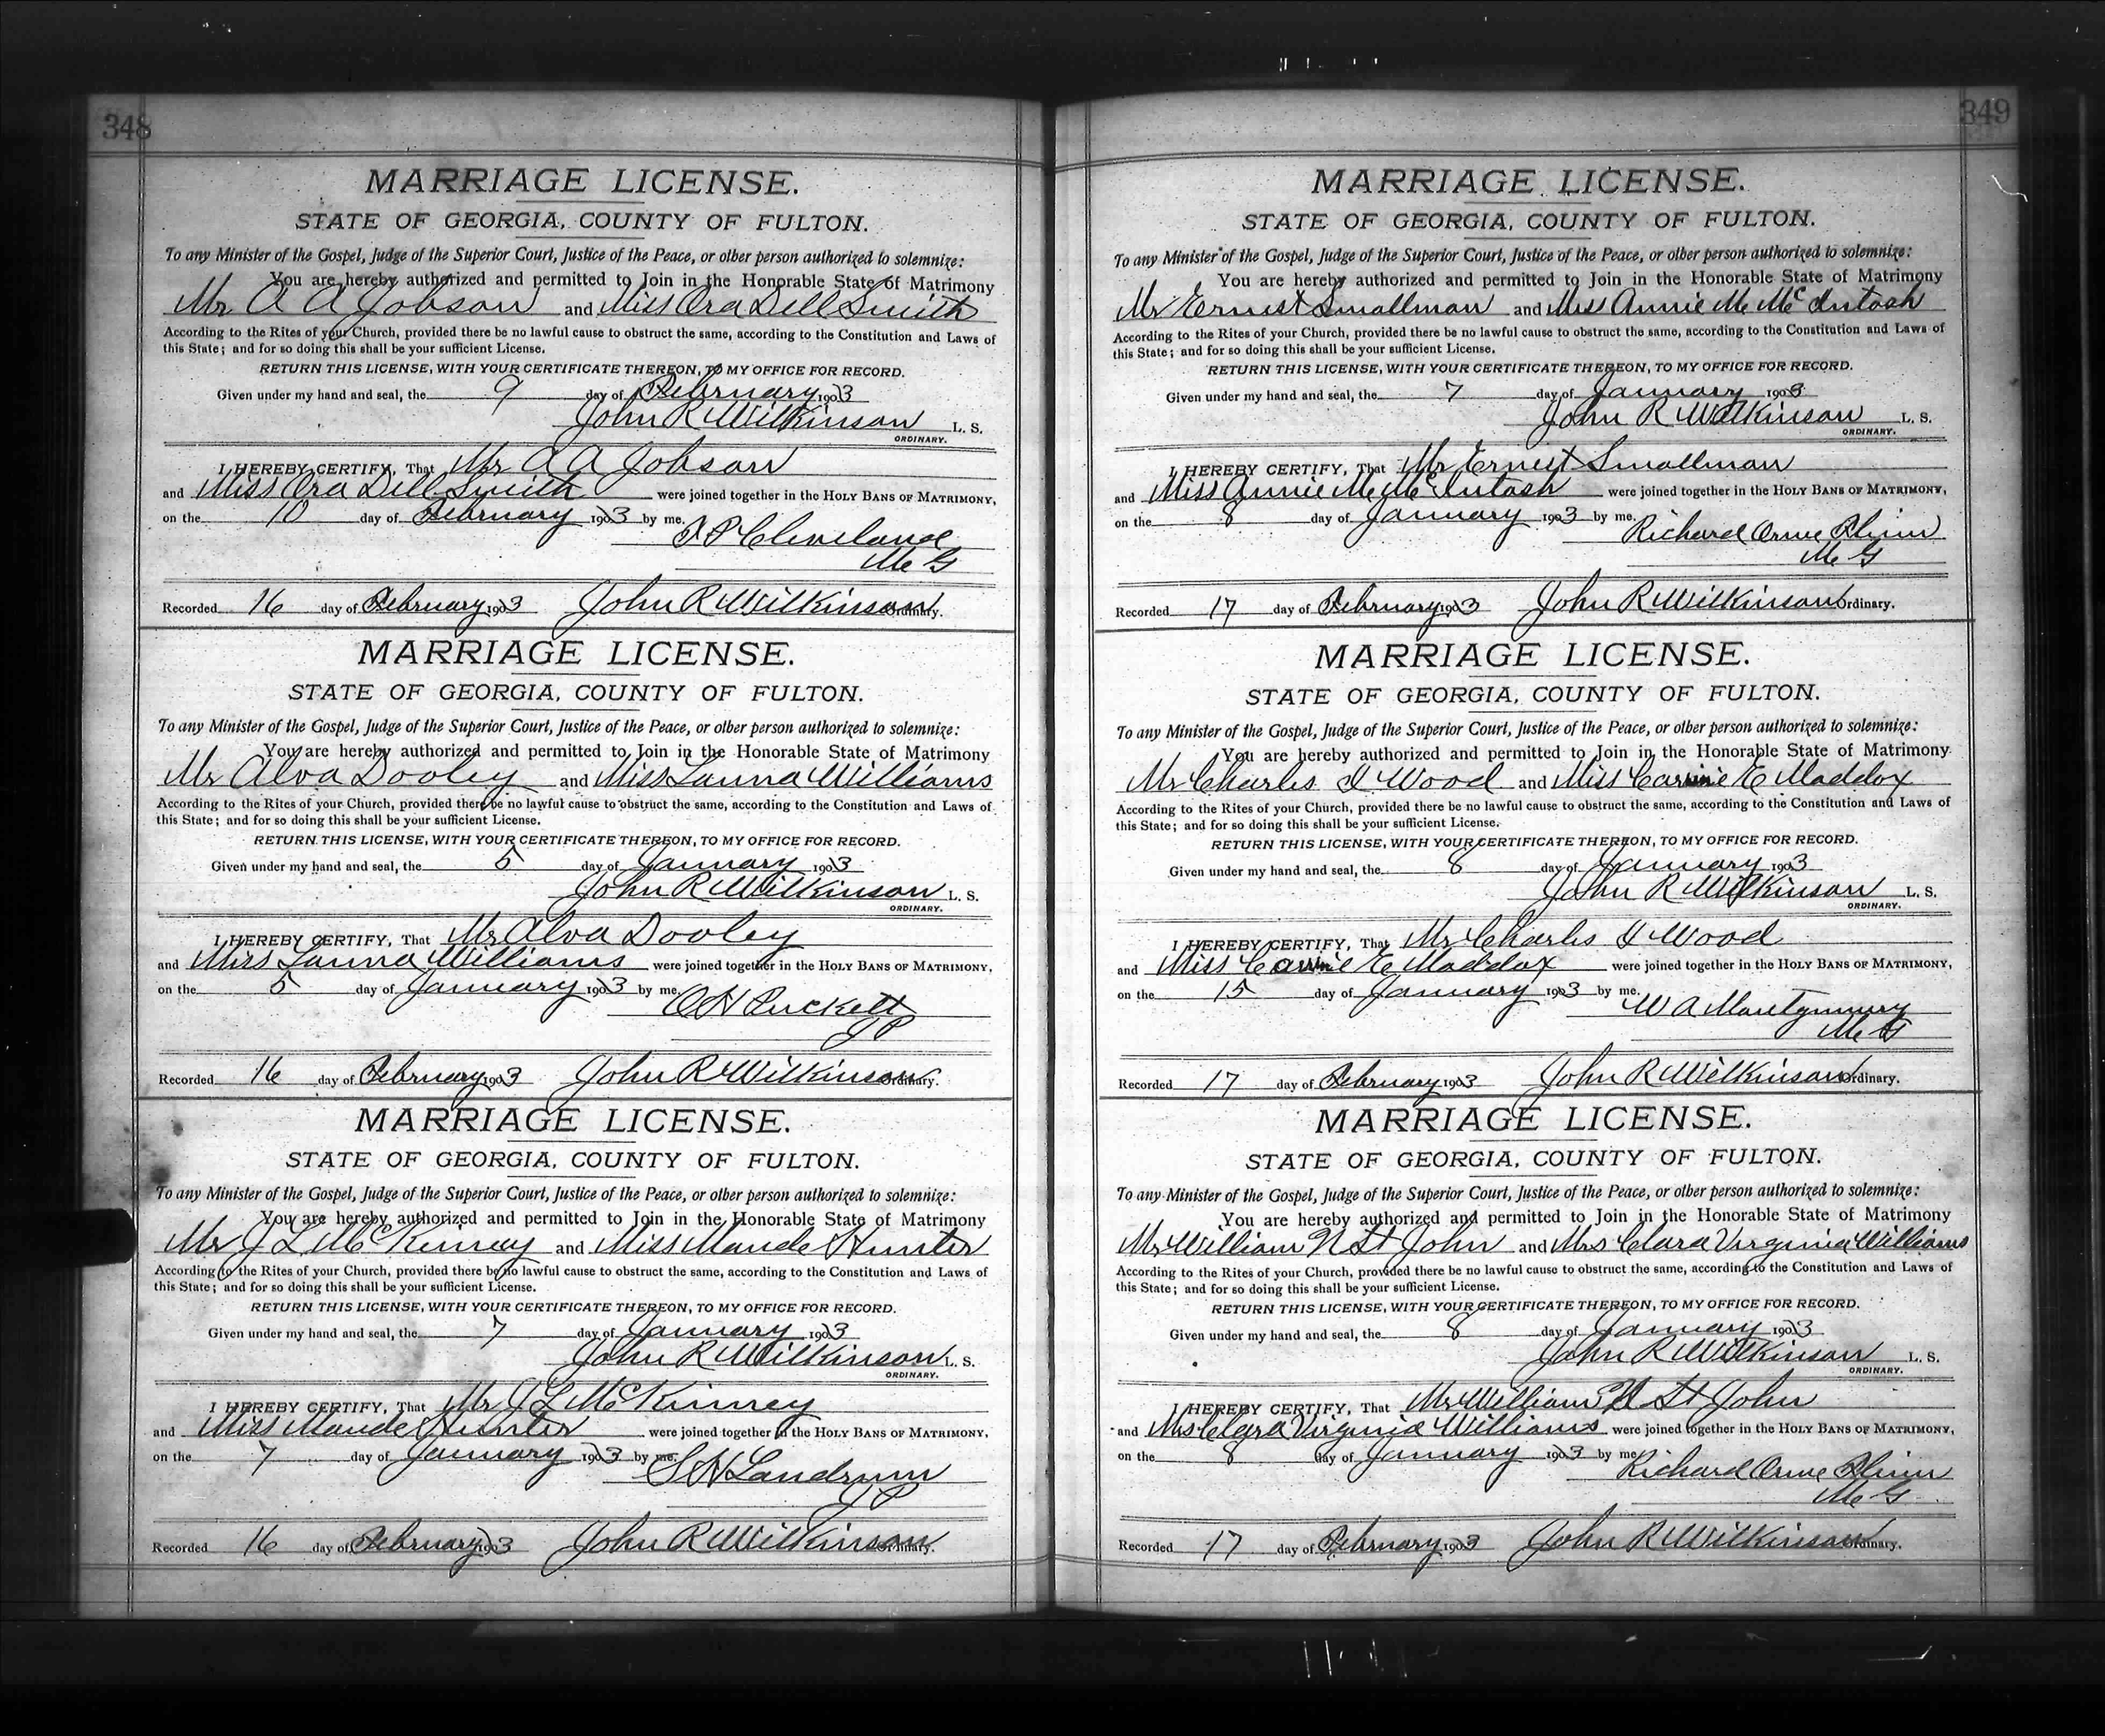 348
MARRIAGE LICENSE.
STATE OF GEORGIA, COUNTY OF FULTON.
To any Minister of the Gospel, Judge of the Superior Court, Justice of the Peace, or other person authorized to solemnize:
You are hereby authorized and permitted to Join in the Honorable State of Matrimony
Mr A A Jobson and Miss Ora Dell Smith
According to the Rites of your Church, provided there be no lawful cause to obstruct the same, according to the Constitution and Laws of
this State; and for so doing this shall be your sufficient License.
RETURN THIS LICENSE, WITH YOUR CERTIFICATE THEREON, TO MY OFFICE FOR RECORD.
Given under my hand and seal, the 9 day of February 1903
John R Wilkinson L. S.
ORDINARY.
I HEREBY CERTIFY, That Mr A A Jobson
and Miss Ora Dell Smith were joined together in the HOLY BANS OF MATRIMONY,
on the 10 day of February 1903 by me.
Cleveland
M G
Recorded 16 day of February 1903 John R Wilkinson Ordinary.
MARRIAGE LICENSE.
STATE OF GEORGIA, COUNTY OF FULTON.
To any Minister of the Gospel, Judge of the Superior Court, Justice of the Peace, or other person authorized to solemnize:
You are hereby authorized and permitted to Join in the Honorable State of Matrimony
Mr Alva Dooley and Miss Launa Williams
According to the Rites of your Church, provided there be no lawful cause to obstruct the same, according to the Constitution and Laws of
this State; and for so doing this shall be your sufficient License.
RETURN THIS LICENSE, WITH YOUR CERTIFICATE THEREON, TO MY OFFICE FOR RECORD.
Given under my hand and seal, the 5 day of January 1903
John R Wilkinson L. S.
ORDINARY.
I HEREBY CERTIFY, That Mr Alva Dooley
and Miss Launa Williams were joined together in the HOLY BANS OF MATRIMONY,
on the 5 day of January 1903 by me.
O H Puckett
J P
Recorded 16 day of February 1903 John R Wilkinson Ordinary.
MARRIAGE LICENSE.
STATE OF GEORGIA, COUNTY OF FULTON.
To any Minister of the Gospel, Judge of the Superior Court, Justice of the Peace, or other person authorized to solemnize:
You are hereby authorized and permitted to Join in the Honorable State of Matrimony
Mr J L McKinney and Miss Maude Hunter
According to the Rites of your Church, provided there be no lawful cause to obstruct the same, according to the Constitution and Laws of
this State; and for so doing this shall be your sufficient License.
RETURN THIS LICENSE, WITH YOUR CERTIFICATE THEREON, TO MY OFFICE FOR RECORD.
Given under my hand and seal, the 7 day of January 1903
John R Wilkinson L. S.
ORDINARY.
I HEREBY CERTIFY, That Mr J L McKinney
and Miss Maude Hunter were joined together in the HOLY BANS OF MATRIMONY,
on the 7 day of January 1903 by me.
S H Landrum
J P
Recorded 16 day of February 1903 John R Wilkinson Ordinary.
349
MARRIAGE LICENSE.
STATE OF GEORGIA, COUNTY OF FULTON.
To any Minister of the Gospel, Judge of the Superior Court, Justice of the Peace, or other person authorized to solemnize:
You are hereby authorized and permitted to Join in the Honorable State of Matrimony
Mr Ernest Smallman and Miss Annie M McIntosh
According to the Rites of your Church, provided there be no lawful cause to obstruct the same, according to the Constitution and Laws of
this State; and for so doing this shall be your sufficient License.
RETURN THIS LICENSE, WITH YOUR CERTIFICATE THEREON, TO MY OFFICE FOR RECORD.
Given under my hand and seal, the 7 day of January 1903
John R Wilkinson L. S.
ORDINARY.
I HEREBY CERTIFY, That Mr Ernest Smallman
and Miss Annie M McIntosh were joined together in the HOLY BANS OF MATRIMONY,
on the 8 day of January 1903 by me.
Richard Orme Flinn
M G
Recorded 17 day of February 1903 John R Wilkinson Ordinary.
MARRIAGE LICENSE.
STATE OF GEORGIA, COUNTY OF FULTON.
To any Minister of the Gospel, Judge of the Superior Court, Justice of the Peace, or other person authorized to solemnize:
You are hereby authorized and permitted to Join in the Honorable State of Matrimony
Mr Charles I Wood and Miss Carrie E Maddox
According to the Rites of your Church, provided there be no lawful cause to obstruct the same, according to the Constitution and Laws of
this State; and for so doing this shall be your sufficient License.
RETURN THIS LICENSE, WITH YOUR CERTIFICATE THEREON, TO MY OFFICE FOR RECORD.
Given under my hand and seal, the 8 day of January 1903
John R Wilkinson L. S.
ORDINARY.
I HEREBY CERTIFY, That Mr Charles I Wood
and Miss Carrie E Maddox were joined together in the HOLY BANS OF MATRIMONY,
on the 15 day of January 1903 by me.
W A Montgomery
M G
Recorded 17 day of February 1903 John R Wilkinson Ordinary.
MARRIAGE LICENSE.
STATE OF GEORGIA, COUNTY OF FULTON.
To any Minister of the Gospel, Judge of the Superior Court, Justice of the Peace, or other person authorized to solemnize:
You are hereby authorized and permitted to Join in the Honorable State of Matrimony
Mr William N St John and Mrs Clara Virginia Williams
According to the Rites of your Church, provided there be no lawful cause to obstruct the same, according to the Constitution and Laws of
this State; and for so doing this shall be your sufficient License.
RETURN THIS LICENSE, WITH YOUR CERTIFICATE THEREON, TO MY OFFICE FOR RECORD.
Given under my hand and seal, the 8 day of January 1903
John R Wilkinson L. S.
ORDINARY.
I HEREBY CERTIFY, That Mr William N St John
and Mrs Clara Virginia Williams were joined together in the HOLY BANS OF MATRIMONY,
on the 8 day of January 1903 by me
Richard Orme Flinn
M G
Recorded 17 day of February 1903 John R Wilkinson Ordinary.